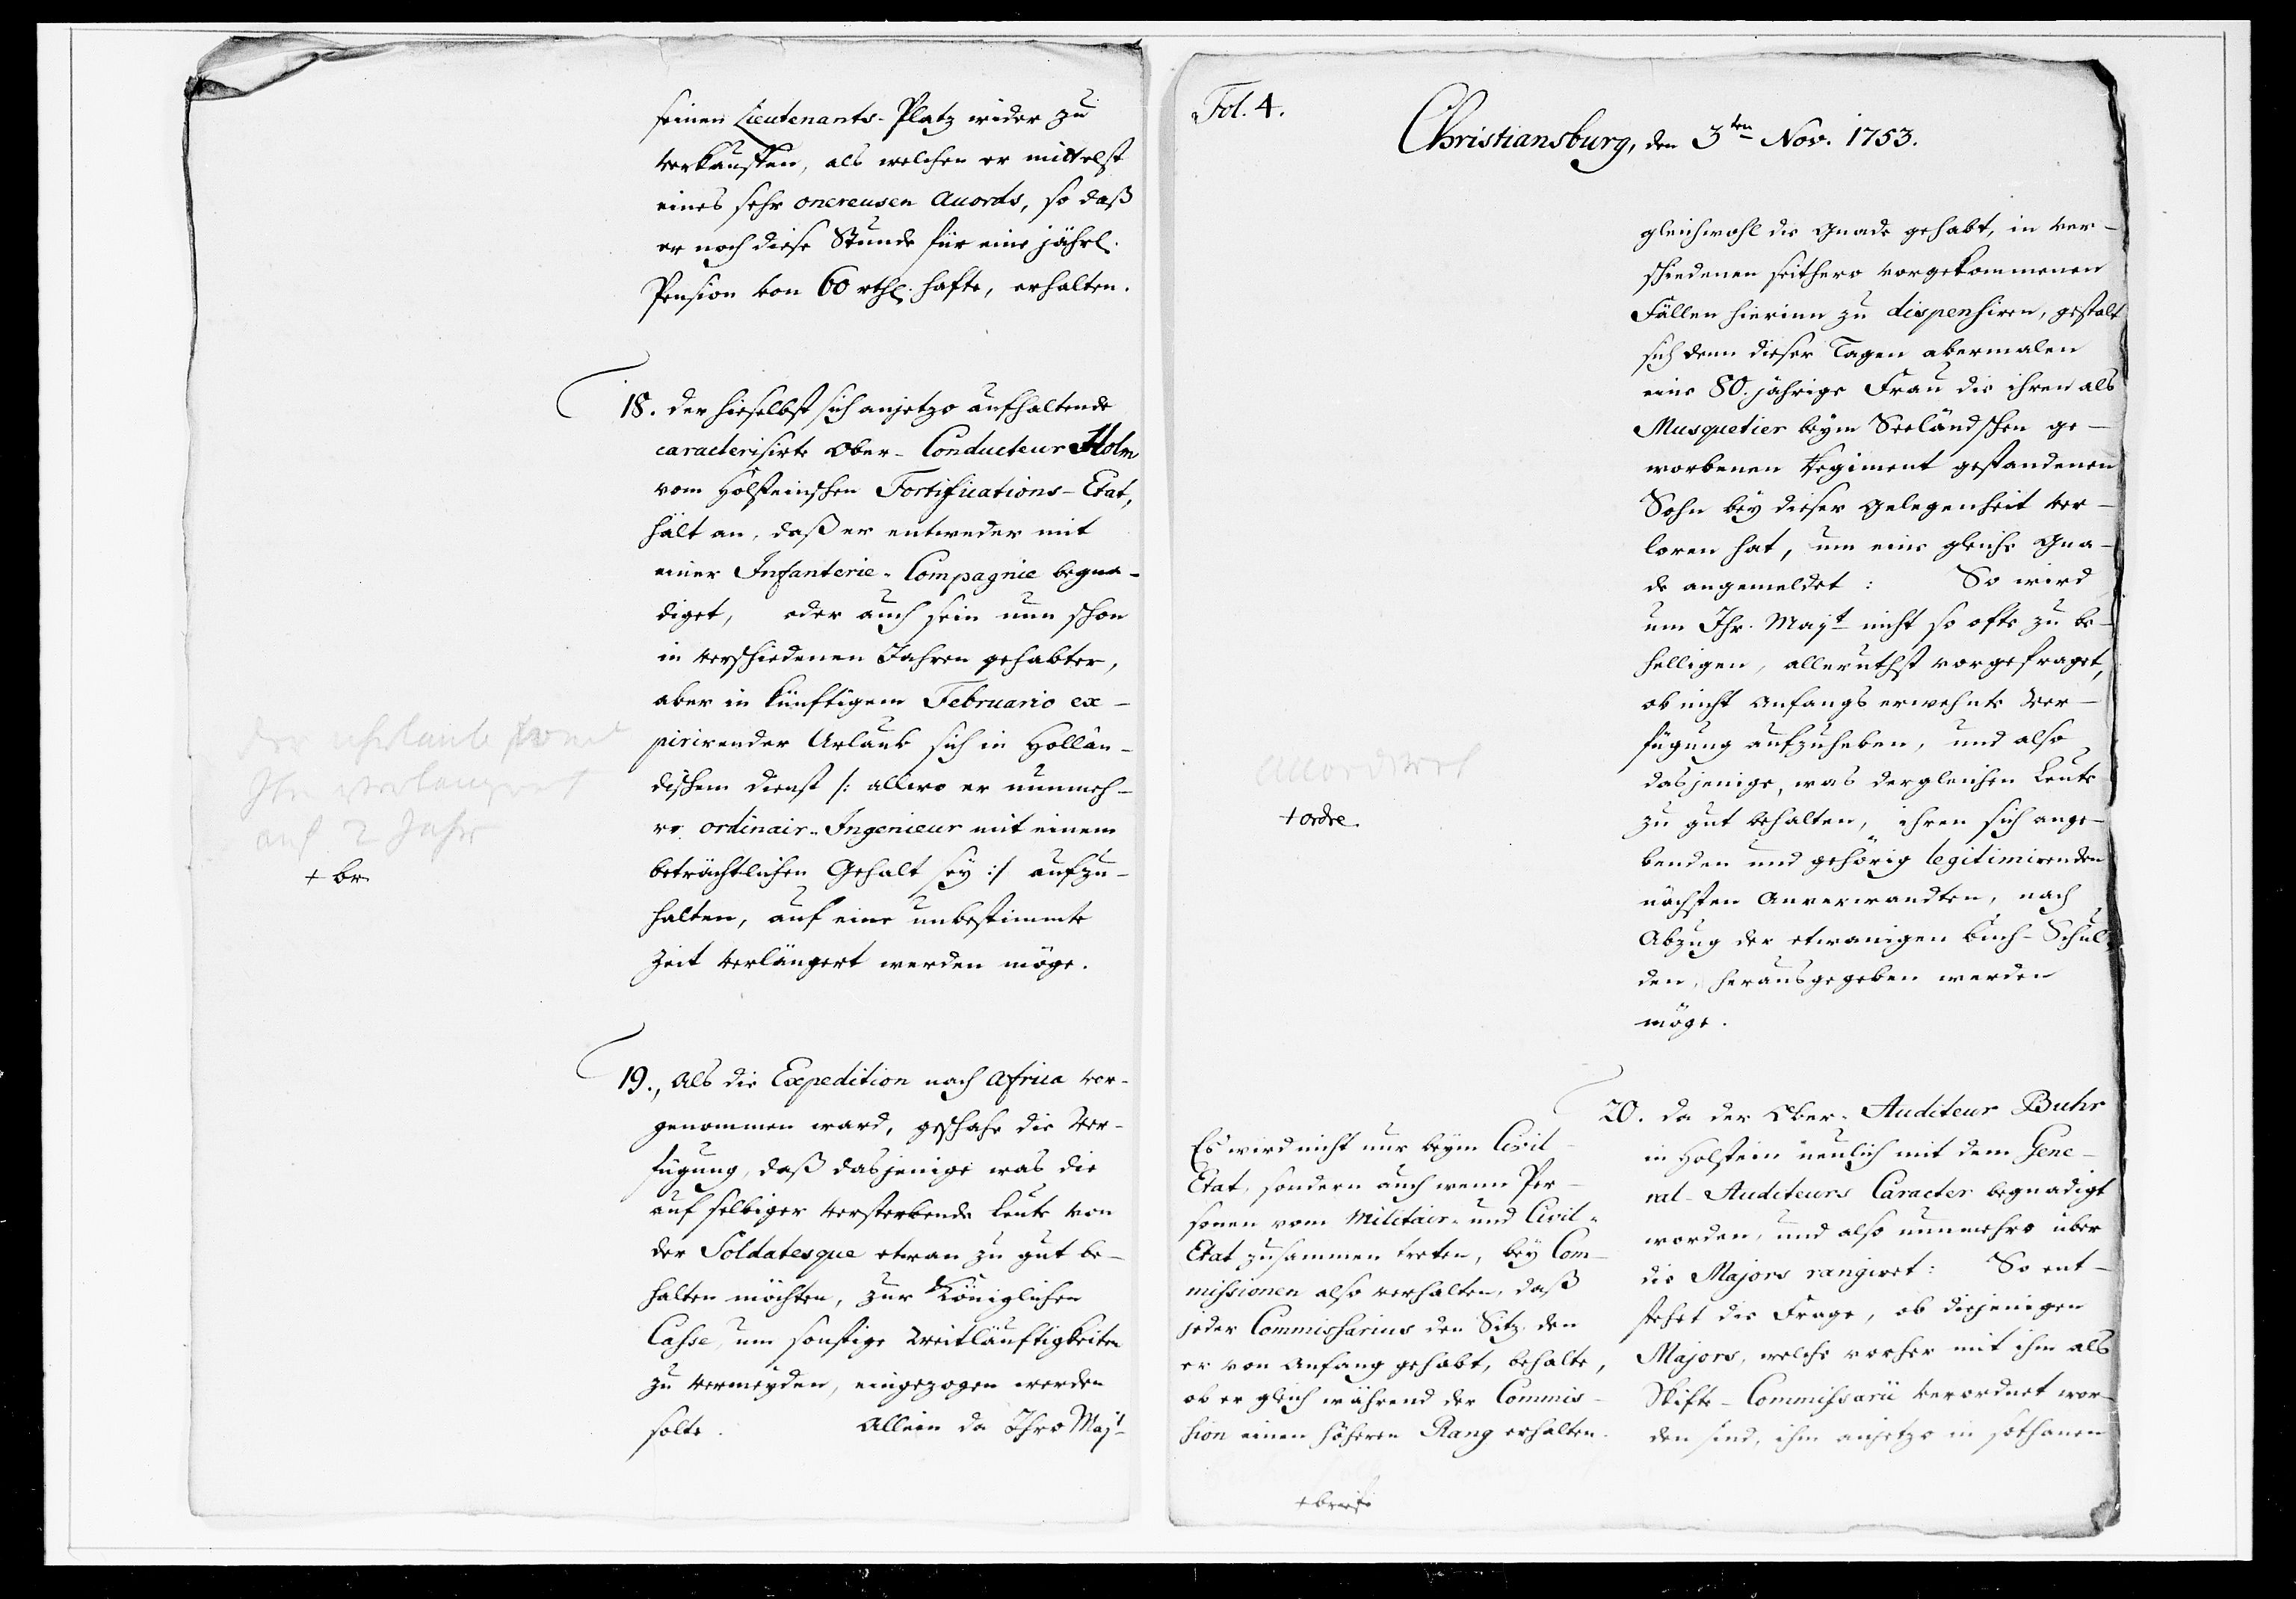 seinen Lieutenants-Platz wider zu
verkauffen, als welchen er mittelst
eines sehr onereusen Accords, so daß
er noch diese Stunde für eine jährl.
Pension von 60 rthl. hafte, erhalten.
18. Der hieselbst sich anjetzo aufhaltende
caracterisirte Ober-Conducteur Holm
vom Holsteinschen Fortifications-Etat,
hält an, daß er entweder mit
einer Infanterie-Compagnie begna-
diget, oder auch sein nun schon
in verschiedenen Jahren gehabter,
aber in künftigem Februario ex-
pirirender Urlaub sich in Hollän-
dischem Dienst /: allwo er nunmeh-
ro ordinair-Ingenieur mit einem
beträchtlichen Gehalt sey :/ aufzu-
halten, auf eine unbestimmte
Zeit verlängert werden möge.
auf 2 Jahr
+ br.
19., Als die Expedition nach Africa vor-
genommen ward, geschahe die Ver-
fügung, daß dasjenige was die
auf selbiger versterbende Leute von
der Soldatesque etwan zu gut be-
halten möchten, zur Königlichen
Casse, um sonstige Weitläuftigkeiten
zu vermeyden, eingezogen werden
solte. Allein da Ihro Majt
Fol. 4.
Christiansburg, den 3ten Nov. 1753.
gleichwohl die Gnade gehabt, in ver-
schiedenen seithero vorgekommenen
Fällen hierinn zu dispensiren, gestalt
sich denn dieser Tagen abermalen
eine 80. jährige Frau die ihren als
Musquetier beym Seeländschen ge-
worbenen Regiment gestandenen
Sohn bey dieser Gelegenheit ver-
loren hat, um eine gleiche Gna-
de angemeldet: So wird
um Ihr. Majt nicht so ofte zu be-
helligen, allerunthst vorgefraget,
ob nicht Anfangs erwehnte Ver-
fügung aufzuheben, und also
dasjenige, was dergleichen Leute
zu gut behalten, ihren sich ange-
benden und gehörig legitimirenden
nächsten Anverwandten, nach
Abzug der etwanigen Buch-Schul-
den, herausgegeben werden
möge.
+ ordre
20. Da der Ober-Auditeur Buhr
in Holstein neulich mit dem Gene-
ral-Auditeurs Caracter begnadigt
worden, und also nunmehro über
die Majors rangiret: So ent-
stehet die Frage, ob diejenigen
Majors, welche vorher mit ihm als
Skifte-Commissarii verordnet wor-
den sind, ihm anjetzo in sothanen
Es wird nicht nur beym Civil-
Etat, sondern auch wenn Per-
sonen vom Militair- und Civil-
Etat zusammen treten, bey Com-
missionen also verhalten, daß
jeder Commissarius den Sitz, den
er von Anfang gehabt, behalte,
ob er gleich während der Commis-
sion einen höheren Rang erhalten.